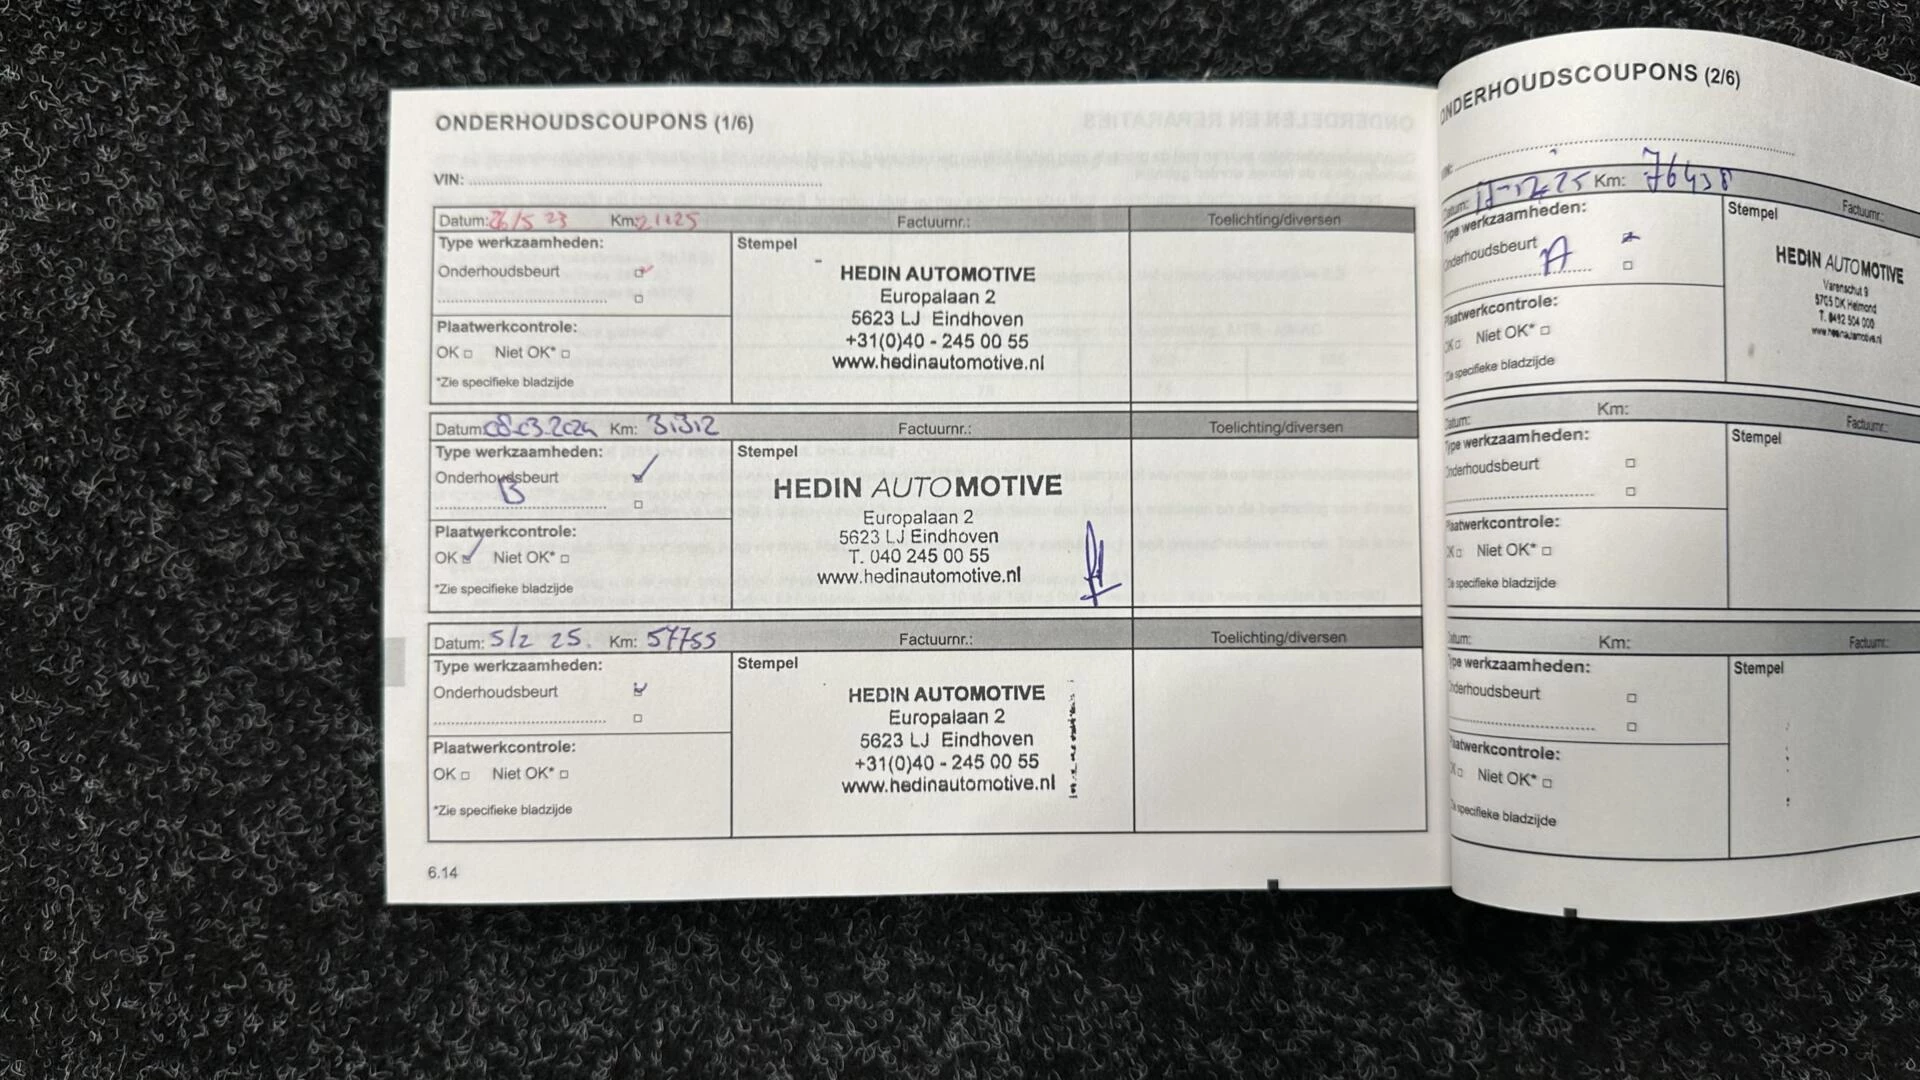 ONDERHOUDSCOUPONS (1/6)
VIN:
Datum: 26/5 23 Km: 21125 Factuurnr.: Toelichting/diversen
Type werkzaamheden: Stempel
Onderhoudsbeurt
Plaatwerkcontrole:
OK Niet OK*
*Zie specifieke bladzijde
HEDIN AUTOMOTIVE
Europalaan 2
5623 LJ Eindhoven
+31(0)40 - 245 00 55
www.hedinautomotive.nl
Datum: 08.03.2024 Km: Factuurnr.: Toelichting/diversen
Type werkzaamheden: Stempel
Onderhoudsbeurt
B
Plaatwerkcontrole:
OK Niet OK*
*Zie specifieke bladzijde
HEDIN AUTOMOTIVE
Europalaan 2
5623 LJ Eindhoven
T. 040 245 00 55
www.hedinautomotive.nl
Datum: 5/2 25. Km: 57755 Factuurnr.: Toelichting/diversen
Type werkzaamheden: Stempel
Onderhoudsbeurt
Plaatwerkcontrole:
OK Niet OK*
*Zie specifieke bladzijde
HEDIN AUTOMOTIVE
Europalaan 2
5623 LJ Eindhoven
+31(0)40 - 245 00 55
www.hedinautomotive.nl
6.14
ONDERHOUDSCOUPONS (2/6)
VIN:
Datum: Km: 76438 Factuurnr.:
Type werkzaamheden: Stempel
Onderhoudsbeurt
A
Plaatwerkcontrole:
OK Niet OK*
*Zie specifieke bladzijde
HEDIN AUTOMOTIVE
Varenschut 9
5705 DK Helmond
T. 0492 504 000
www.hedinautomotive.nl
Datum: Km: Factuurnr.:
Type werkzaamheden: Stempel
Onderhoudsbeurt
Plaatwerkcontrole:
OK Niet OK*
*Zie specifieke bladzijde
Datum: Km: Factuurnr.:
Type werkzaamheden: Stempel
Onderhoudsbeurt
Plaatwerkcontrole:
OK Niet OK*
*Zie specifieke bladzijde